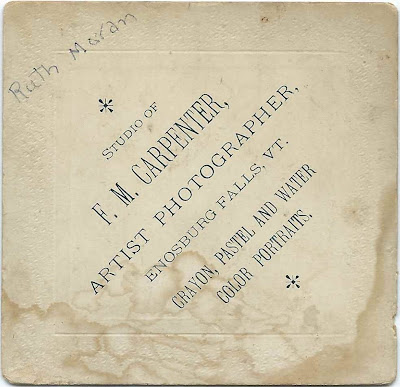 Ruth Moran
STUDIO OF
F. M. CARPENTER,
ARTIST PHOTOGRAPHER,
ENOSBURG FALLS, VT.
CRAYON, PASTEL AND WATER
COLOR PORTRAITS.